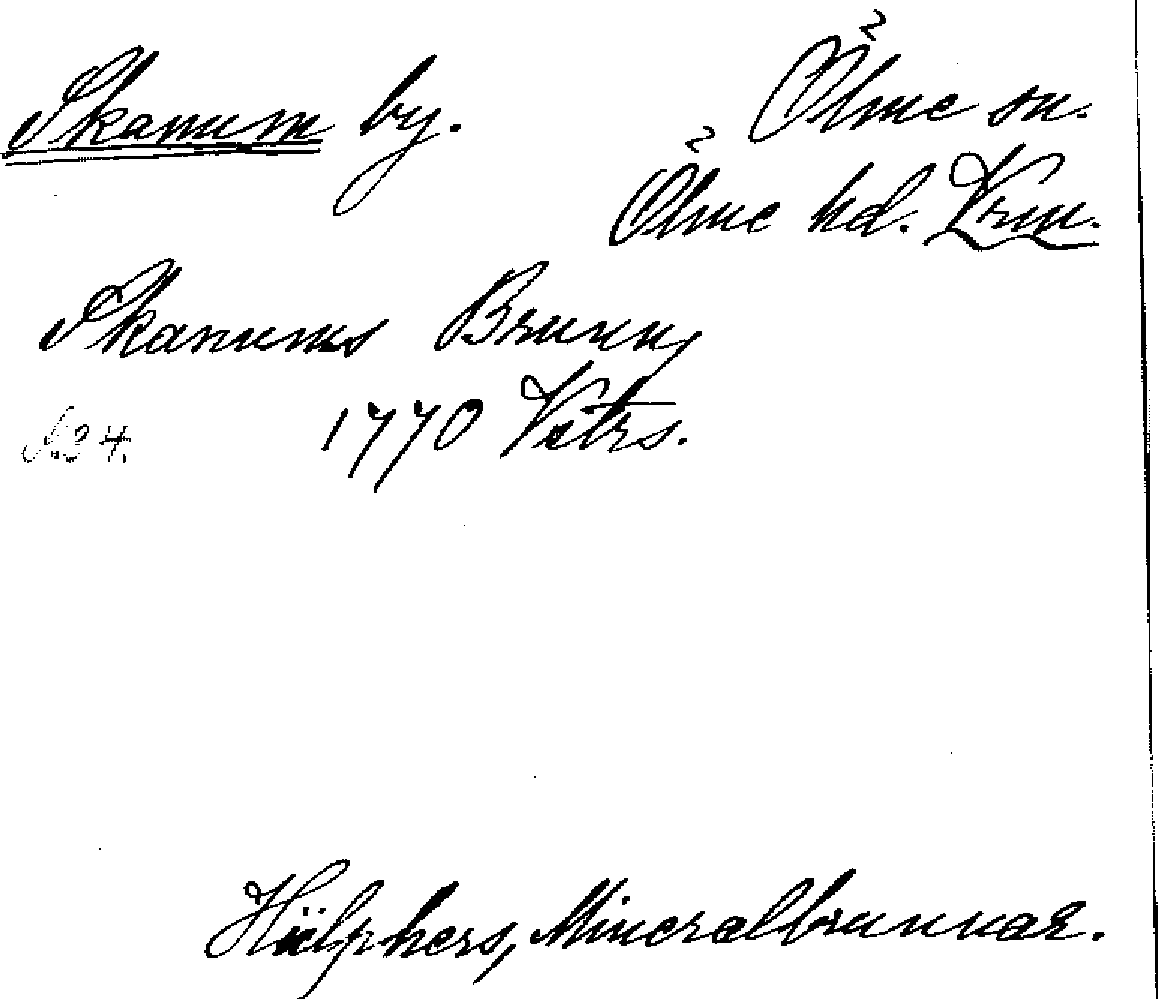 Skanum by. Ölme sn.
Ölme hd. Vrm.
Skanums Brunn,
1770 Vetrs.
Hülphers, Mineralbrunnar.